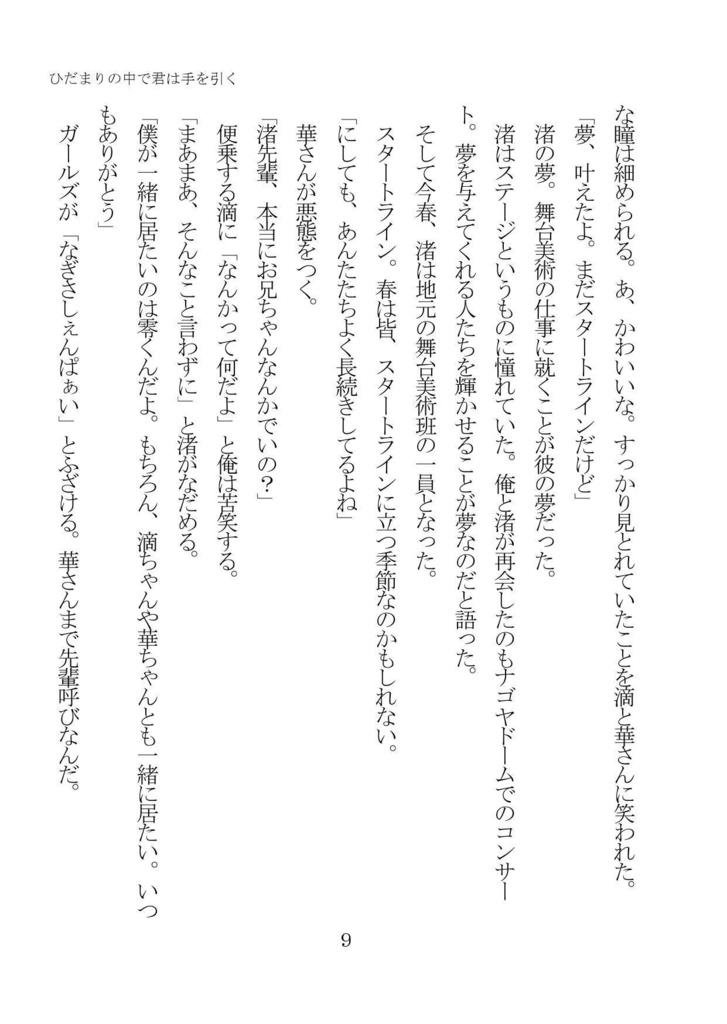 ひだまりの中で君は手を引く
な瞳は細められる。あ、かわいいな。すっかり見とれていたことを滴と華さんに笑われた。
「夢、叶えたよ。まだスタートラインだけど」
渚の夢。舞台美術の仕事に就くことが彼の夢だった。
渚はステージというものに憧れていた。俺と渚が再会したのもナゴヤドームでのコンサー
ト。夢を与えてくれる人たちを輝かせることが夢なのだと語った。
そして今春、渚は地元の舞台美術班の一員となった。
スタートライン。春は皆、スタートラインに立つ季節なのかもしれない。
「にしても、あんたたちよく長続きしてるよね」
華さんが悪態をつく。
「渚先輩、本当にお兄ちゃんなんかでいの？」
便乗する滴に「なんかって何だよ」と俺は苦笑する。
「まあまあ、そんなこと言わずに」と渚がなだめる。
「僕が一緒に居たいのは零くんだよ。もちろん、滴ちゃんや華ちゃんとも一緒に居たい。いつ
もありがとう」
ガールズが「なぎさしぇんぱぁい」とふざける。華さんまで先輩呼びなんだ。
9